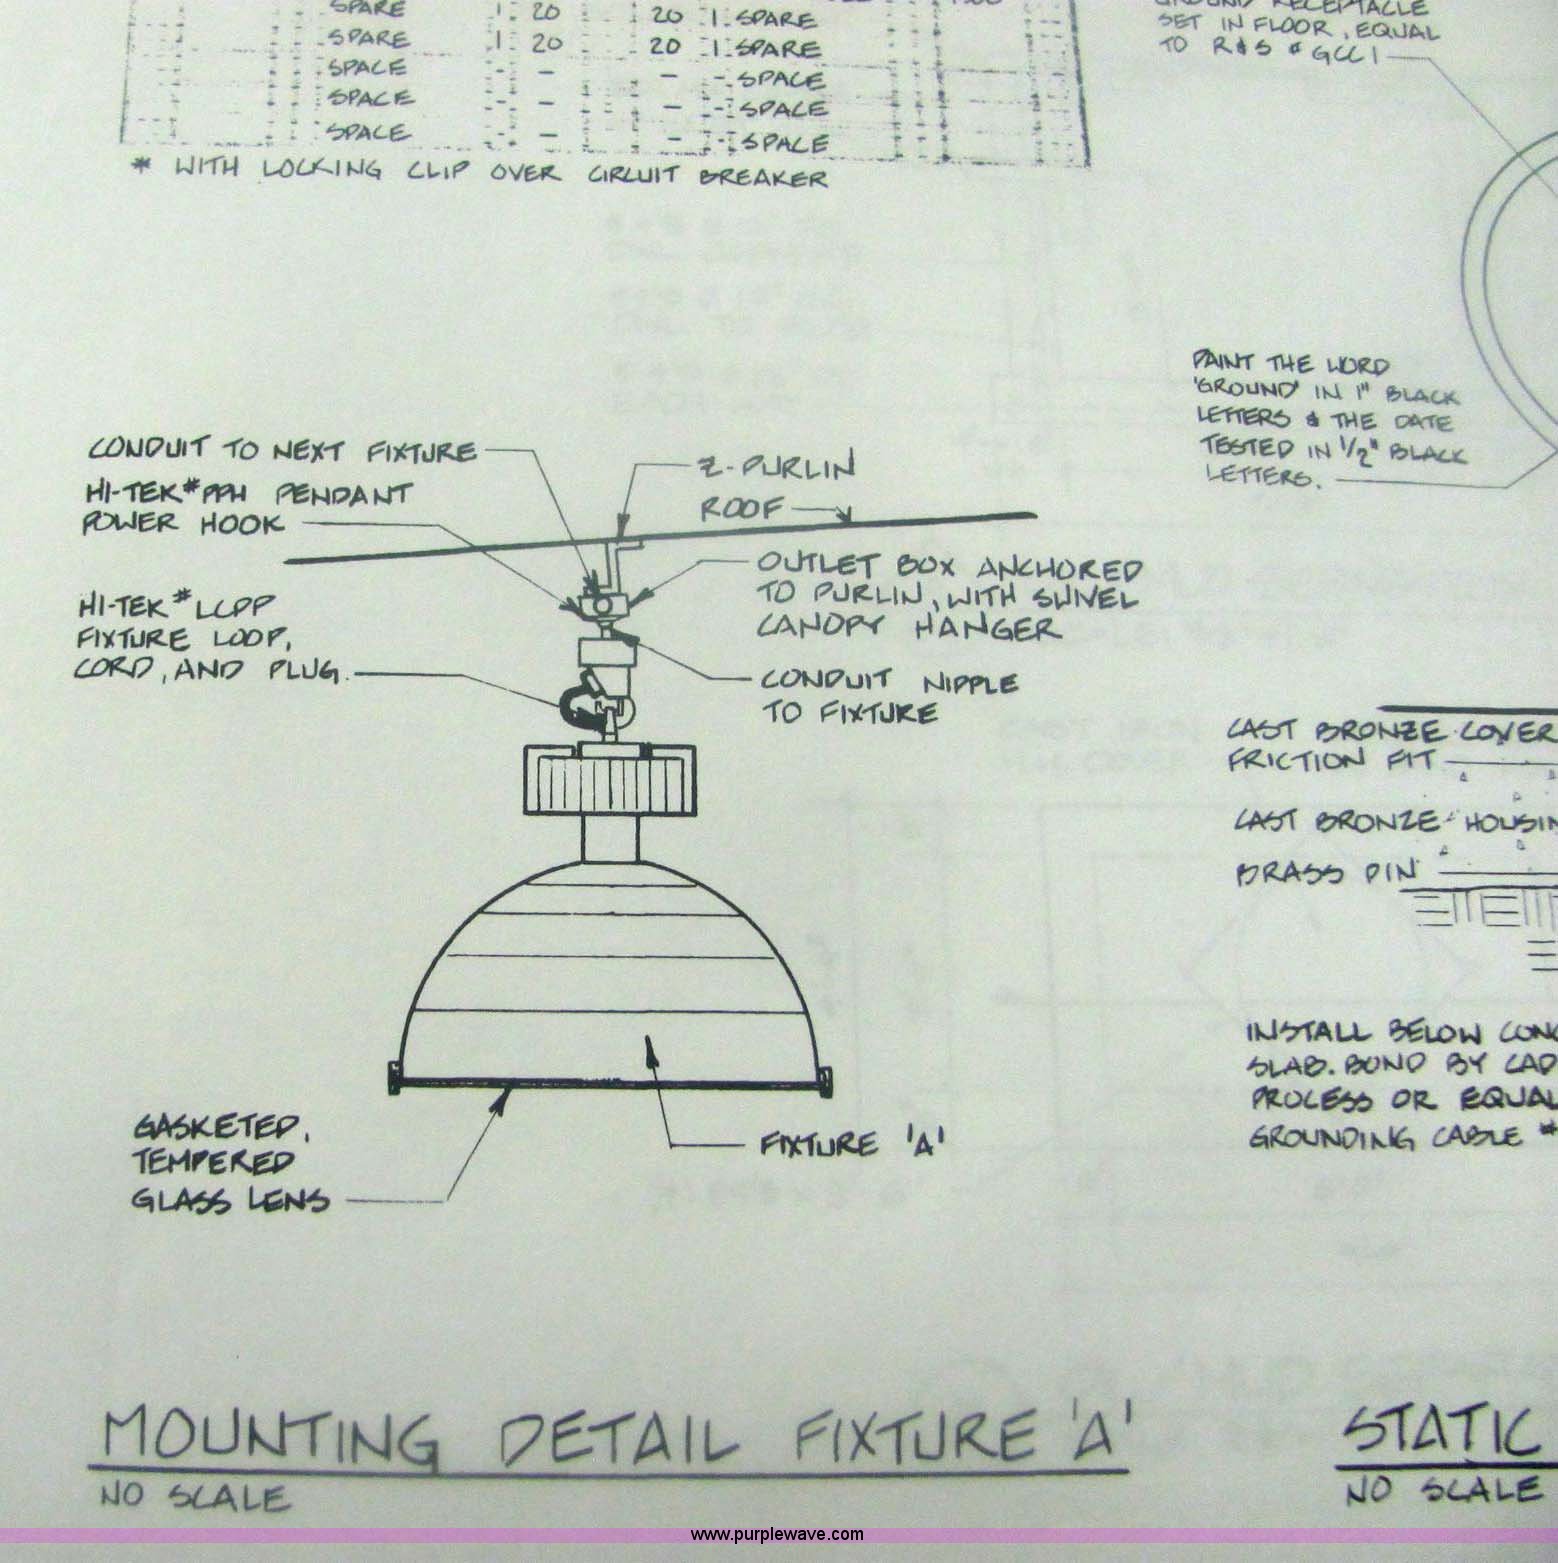 SPARE 1 20 20 1 SPARE
SPARE 1 20 20 1 SPARE
SPACE - - - - SPACE
SPACE - - - - SPACE
SPACE - - - - SPACE
* WITH LOCKING CLIP OVER CIRCUIT BREAKER
GROUND RECEPTACLE
SET IN FLOOR, EQUAL
TO R & S # GCC1
PAINT THE WORD
'GROUND' IN 1" BLACK
LETTERS & THE DATE
TESTED IN 1/2" BLACK
LETTERS.
CONDUIT TO NEXT FIXTURE
HI-TEK # PPH PENDANT
POWER HOOK
HI-TEK # LCPP
FIXTURE LOOP,
CORD, AND PLUG.
Z-PURLIN
ROOF
OUTLET BOX ANCHORED
TO PURLIN, WITH SWIVEL
CANOPY HANGER
CONDUIT NIPPLE
TO FIXTURE
GASKETED,
TEMPERED
GLASS LENS
FIXTURE 'A'
CAST BRONZE COVER
FRICTION FIT
CAST BRONZE HOUSIN
BRASS PIN
INSTALL BELOW CONC
SLAB. BOND BY CAD
PROCESS OR EQUAL
GROUNDING CABLE #
MOUNTING DETAIL FIXTURE 'A'
NO SCALE
STATIC
NO SCALE
www.purplewave.com